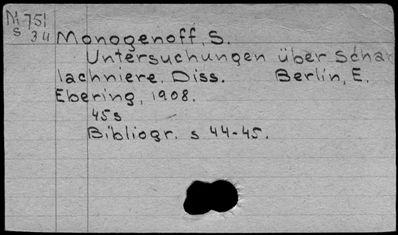 M 751
S 34
Monogenoff, S.
Untersuchungen über Schar
lachniere. Diss. Berlin, E.
Ebering, 1908.
45s
Bibliogr. s 44-45.